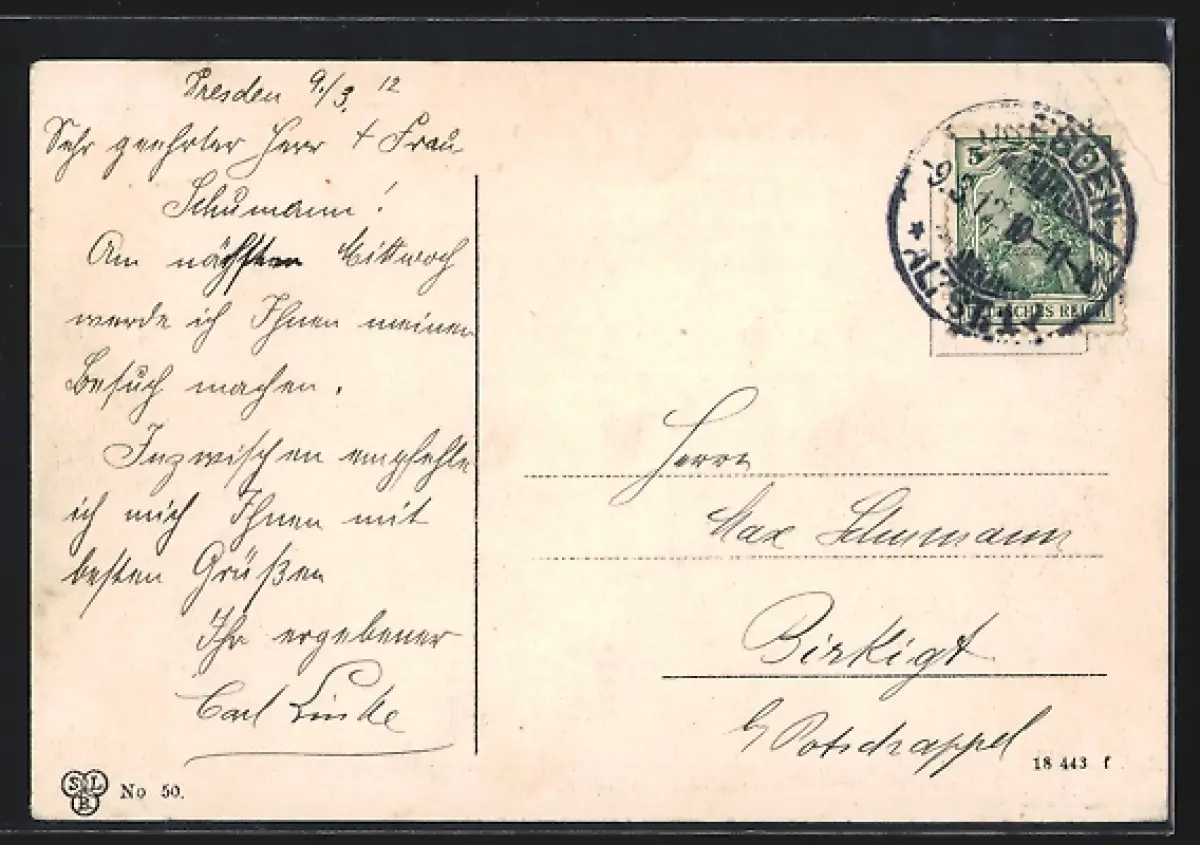 Dresden 9./3. 12
Sehr geehrter Herr + Frau
Schumann!
Am nächsten Mittwoch
werde ich Ihnen meinen
Besuch machen.
Inzwischen empfehle
ich mich Ihnen mit
besten Grüßen
Ihr ergebener
Carl Linke
SLB No 50.
5
DEUTSCHES REICH
DRESDEN-
* ALTST.
9.3.12
Herrn
Max Schumann
Birkigt
b/ Potschappel
18 443 f